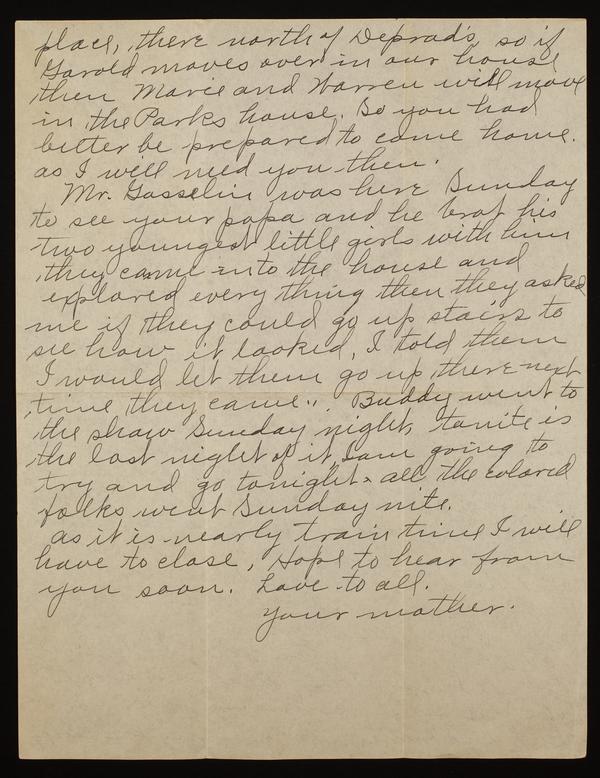 place, there north of Deprad's, so if
Garold moves over in our house
then Marie and Warren will move
in the Parks house. So you had
better be prepared to come home.
as I will need you then.
Mr. Gasselin was here Sunday
to see your papa and he brot his
two youngest little girls with him
they came into the house and
explored every thing then they asked
me if they could go up stairs to
see how it looked, I told them
I would let them go up there next
time they came.. Buddy went to
the show Sunday night, tonite is
the last night of it, I am going to
try and go tonight. all the colored
folks went Sunday nite.
as it is nearly train time I will
have to close, Hope to hear from
you soon. Love to all.
your mother.